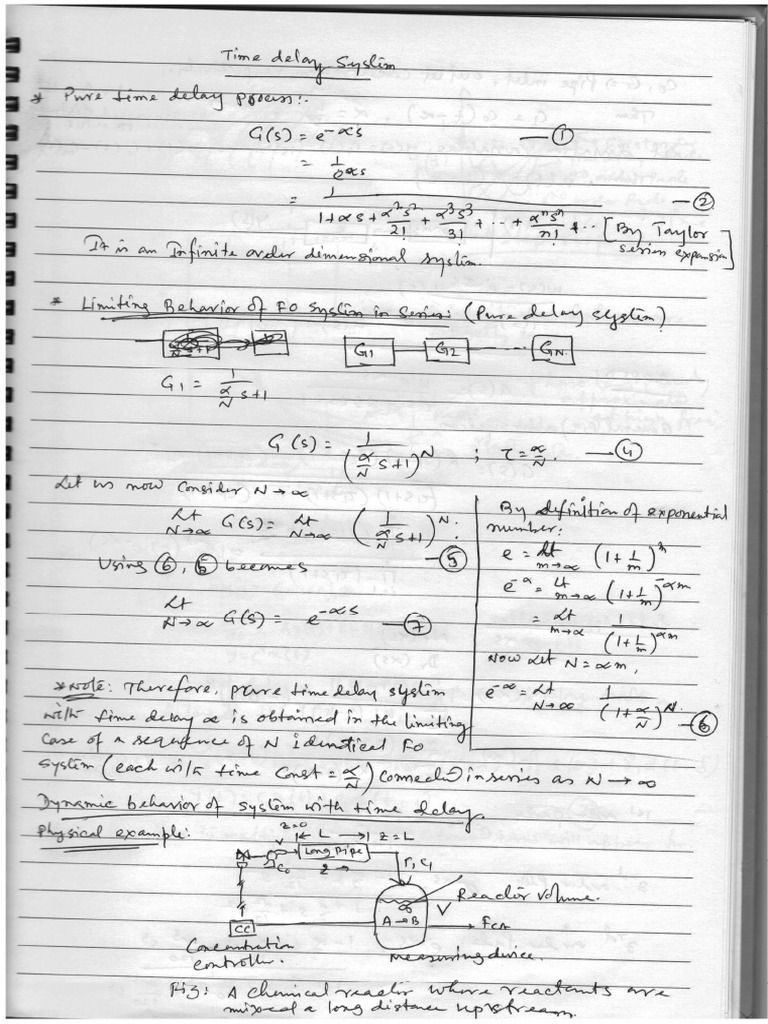 Time delay System
* Pure time delay process:.
G(s) = e^{-αs} — ①
= 1/e^{αs}
= 1/(1 + αs + α²s²/2! + α³s³/3! + ... + αⁿsⁿ/n! + ..) — ② [By Taylor series expansion]
It is an Infinite order dimensional system.
* Limiting Behavior of FO system in series: (Pure delay system)
G1 G2 GN
G1 = 1/(α/N s+1)
G(s) = 1/(α/N s+1)^N ; τ = α/N. — ④
Let us now consider N → ∝
Lt N→∝ G(s) = Lt N→∝ (1/(α/N s+1))^N. — ⑤
Using ⑥, ⑤ becomes
Lt N→∝ G(s) = e^{-αs} — ⑦
By definition of exponential
number:
e = Lt m→∝ (1+1/m)^m
e^{-α} = Lt m→∝ (1+1/m)^{-αm}
= Lt m→∝ 1/(1+1/m)^{αm}
Now Let N = αm,
e^{-α} = Lt N→∝ 1/(1+α/N)^N. — ⑥
* Note: Therefore, pure time delay system
with time delay α is obtained in the limiting
case of a sequence of N identical FO
system (each with time Const = α/N) connected in series as N → ∝
Dynamic behavior of system with time delay
Physical example:
z=0 |← L →| z=L
V Long Pipe
C0 z →
F, C1
Reactor volume.
V
A→B
FCA
CC
Concentration
controller.
Measuring device.
Fig: A chemical reactor where reactants are
mixed a long distance upstream.